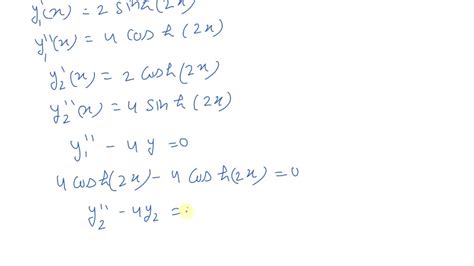 y₁'(x) = 2 sinh(2x)
y₁''(x) = 4 cosh(2x)
y₂'(x) = 2 cosh(2x)
y₂''(x) = 4 sinh(2x)
y₁'' - 4y = 0
4 cosh(2x) - 4 cosh(2x) = 0
y₂'' - 4y₂ =